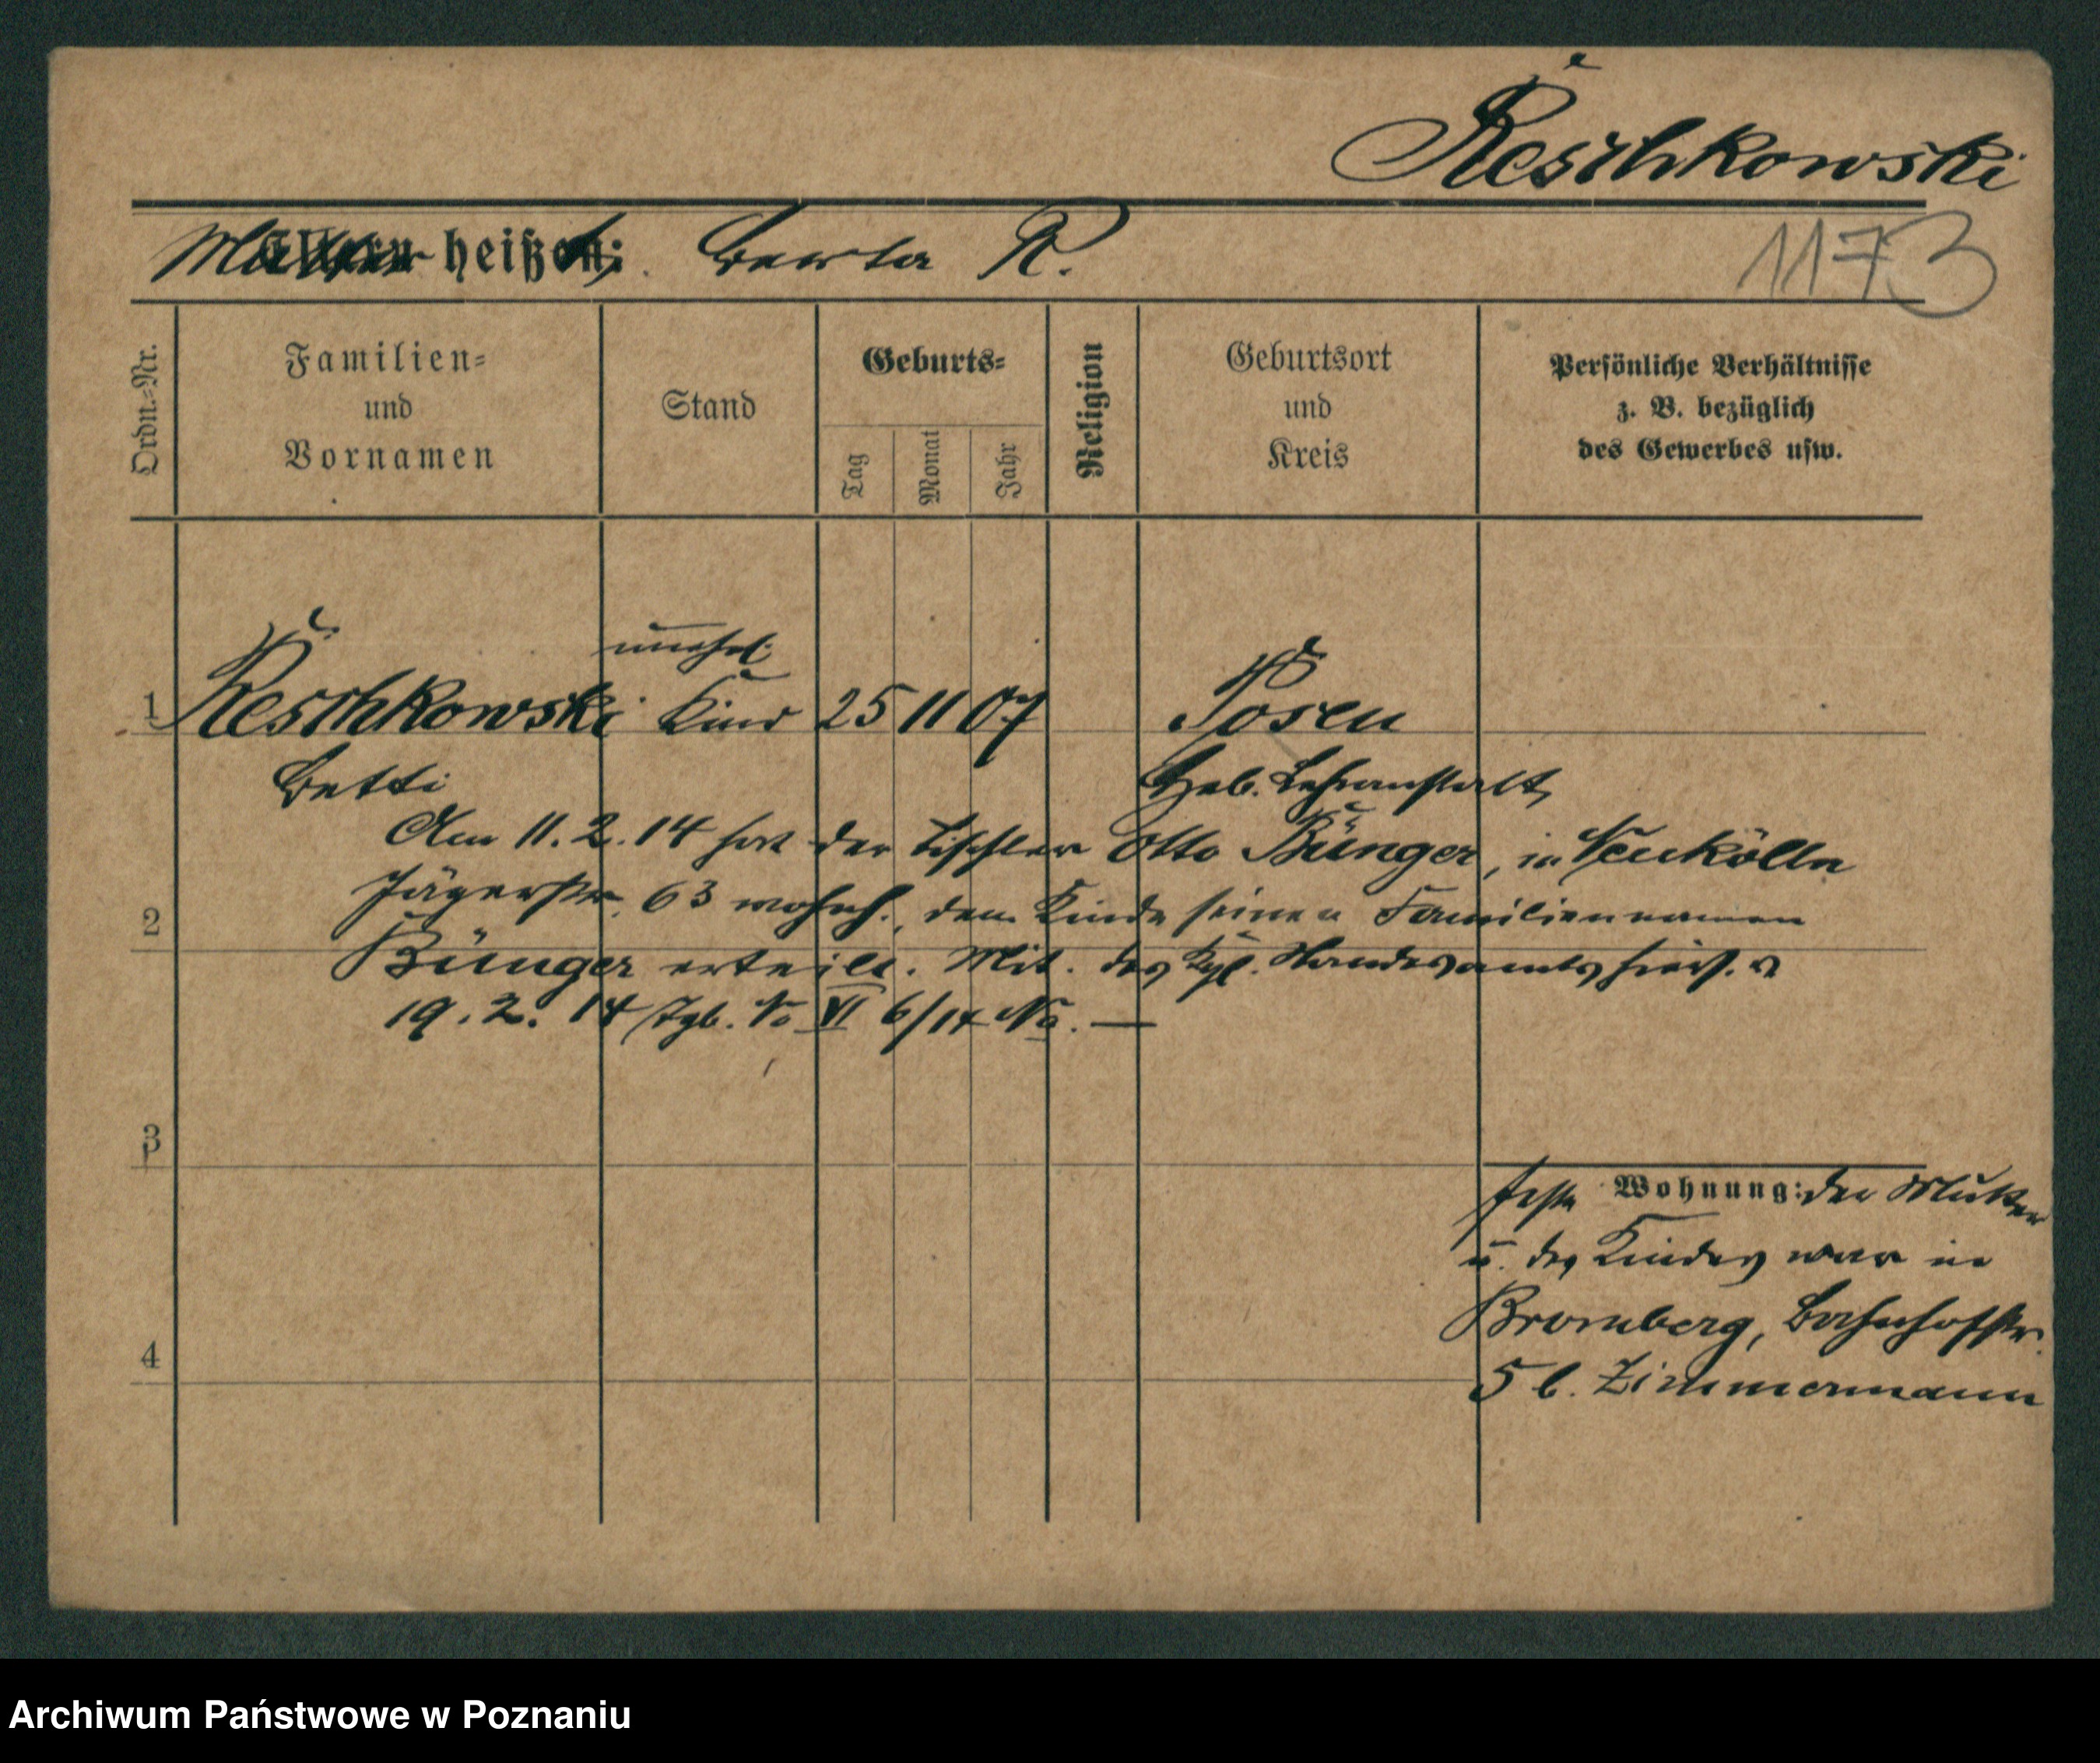 Reschkowski
Mutter heißt: Berta R.
1173
Ordn.=Nr.
Familien=
und
Vornamen
Stand
Geburts=
Tag
Monat
Jahr
Religion
Geburtsort
und
Kreis
Persönliche Verhältnisse
z. B. bezüglich
des Gewerbes usw.
unehel.
1 Reschkowski Kind 25 11 07 Posen
Betti Heb. Lehranstalt
Am 11. 2. 14 hat der Tischler Otto Bünger, in Neukölln
Jägerstr. 63 wohnh., dem Kinde seinen Familiennamen
2
Bünger erteilt. Mit. des Kgl. Standesamts hiers. v
19. 2. 14 Tgb. No VI 6/14 Na. —
3
feste Wohnung: der Mutter
u. des Kindes war in
Bromberg, Bahnhofstr.
4
5 b. Zimmermann
Archiwum Państwowe w Poznaniu